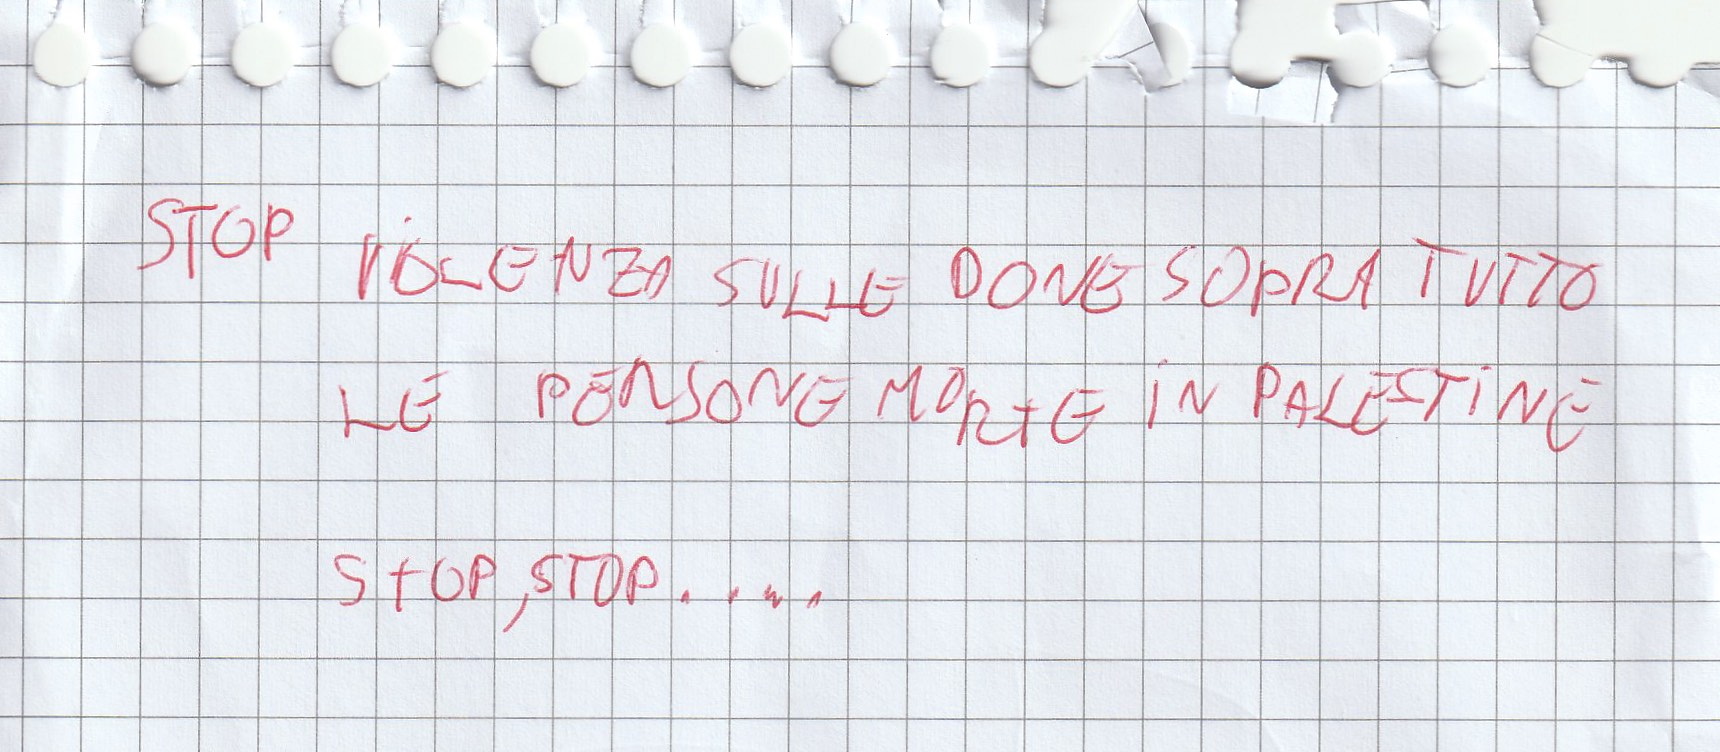 STOP ViOLENZA SULLE DONE SOPRA TUTTO
LE PERSONE MORTE iN PALESTiNE
STOP, STOP.....